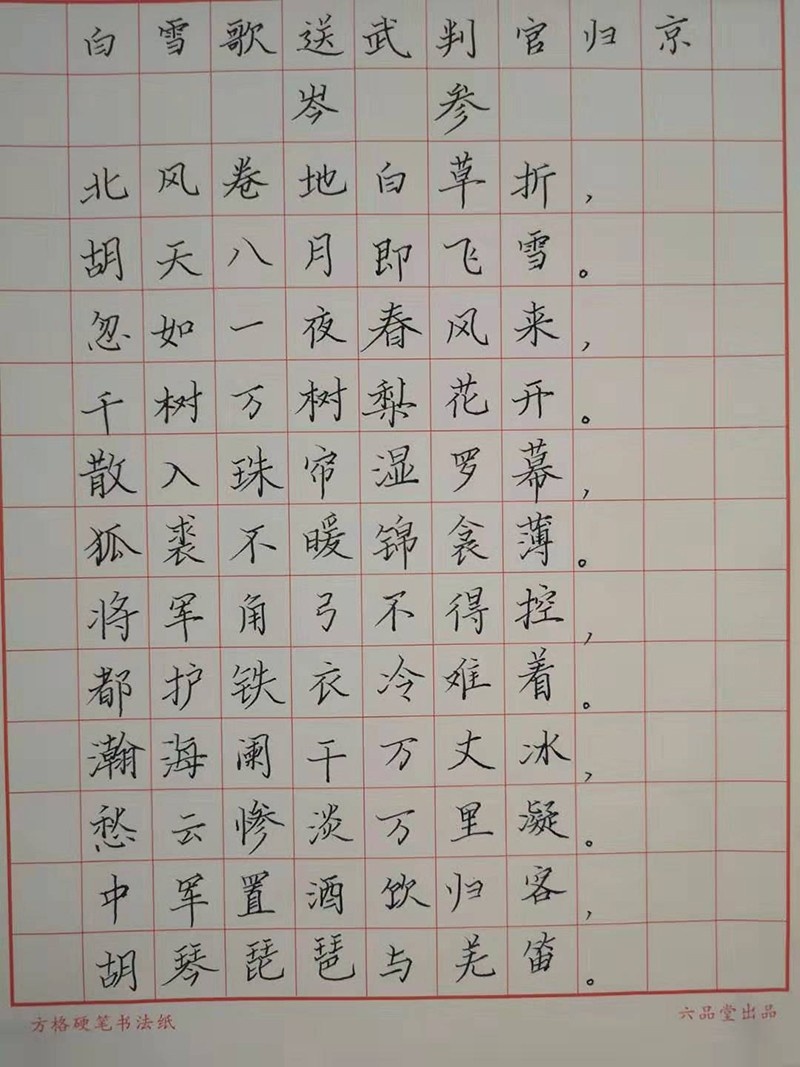 白雪歌送武判官归京
岑参
北风卷地白草折，
胡天八月即飞雪。
忽如一夜春风来，
千树万树梨花开。
散入珠帘湿罗幕，
狐裘不暖锦衾薄。
将军角弓不得控，
都护铁衣冷难着。
瀚海阑干万丈冰，
愁云惨淡万里凝。
中军置酒饮归客，
胡琴琵琶与羌笛。
方格硬笔书法纸
六品堂出品